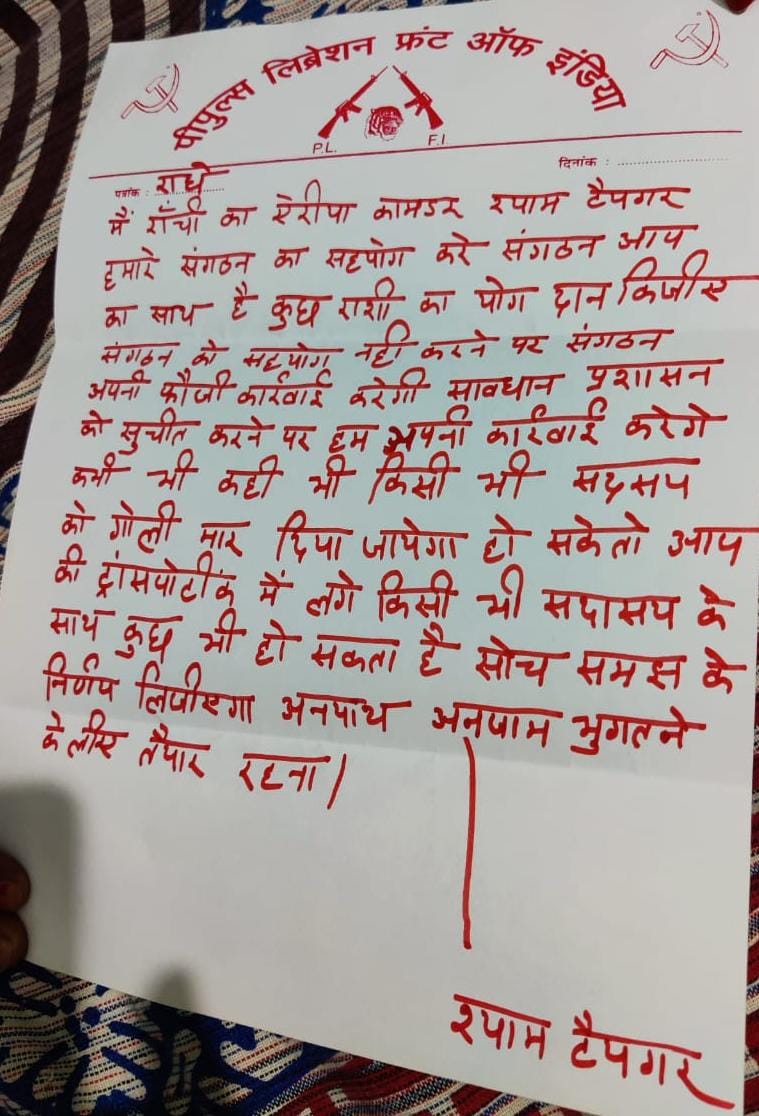 पीपुल्स लिब्रेशन फ्रंट ऑफ इंडिया
P.L. F.I
दिनांक :
पत्रांक : राधे
मैं राँची का ऐरीपा कामडर श्याम टैपगर
हमारे संगठन का सहयोग करे संगठन आप
का साथ है कुछ राशी का योग दान किजीए
संगठन को सहयोग नही करने पर संगठन
अपनी फौजी कार्रवाई करेगी सावधान प्रशासन
को सुचीत करने पर हम अपनी कार्रवाई करेगे
कभी भी कही भी किसी भी सदसय
को गोली मार दिया जायेगा हो सकेतो आप
की ट्रांसपोर्टीक में लगे किसी भी सदासय के
साथ कुछ भी हो सकता है सोच समझ के
निर्णय लिजीएगा अनयाथ अनजाम भुगतने
के लीए तैयार रहना।
श्याम टैपगर